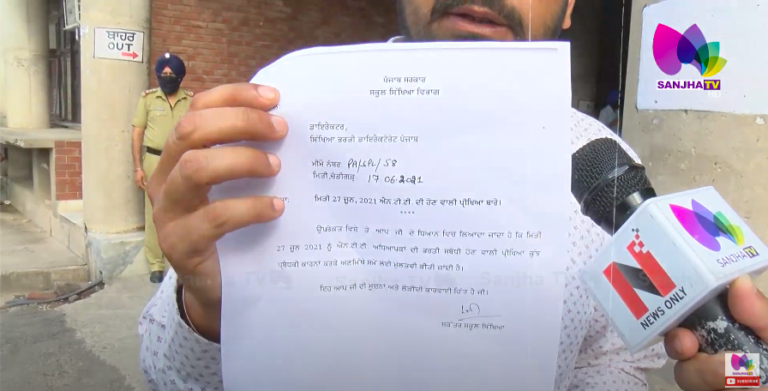 ਬਾਹਰ
OUT
SANJHA TV
ਪੰਜਾਬ ਸਰਕਾਰ
ਸਕੂਲ ਸਿੱਖਿਆ ਵਿਭਾਗ
ਡਾਇਰੈਕਟਰ,
ਸਿੱਖਿਆ ਭਰਤੀ ਡਾਇਰੈਕਟੋਰੇਟ ਪੰਜਾਬ
ਮੀਮੋ ਨੰਬਰ PA/SPL/58
ਮਿਤੀ,ਚੰਡੀਗੜ੍ਹ 17.06.2021
ਮਿਤੀ 27 ਜੂਨ, 2021 ਐਨ.ਟੀ.ਟੀ. ਦੀ ਹੋਣ ਵਾਲੀ ਪ੍ਰੀਖਿਆ ਬਾਰੇ।
****
ਉਪਰੋਕਤ ਵਿਸ਼ੇ ਤੇ ਆਪ ਜੀ ਦੇ ਧਿਆਨ ਵਿੱਚ ਲਿਆਂਦਾ ਜਾਂਦਾ ਹੈ ਕਿ ਮਿਤੀ
27 ਜੂਨ 2021 ਨੂੰ ਐਨ.ਟੀ.ਟੀ. ਅਧਿਆਪਕਾਂ ਦੀ ਭਰਤੀ ਸਬੰਧੀ ਹੋਣ ਵਾਲੀ ਪ੍ਰੀਖਿਆ ਕੁਝ
ਪ੍ਰਬੰਧਕੀ ਕਾਰਨਾਂ ਕਰਕੇ ਅਣਮਿੱਥੇ ਸਮੇਂ ਲਈ ਮੁਲਤਵੀ ਕੀਤੀ ਜਾਂਦੀ ਹੈ।
ਇਹ ਆਪ ਜੀ ਦੀ ਸੂਚਨਾ ਅਤੇ ਲੋੜੀਂਦੀ ਕਾਰਵਾਈ ਹਿੱਤ ਹੈ ਜੀ।
ਸਕੱਤਰ ਸਕੂਲ ਸਿੱਖਿਆ
N
NEWS ONLY
SANJHA TV
SANJHA TV
SUBSCRIBE